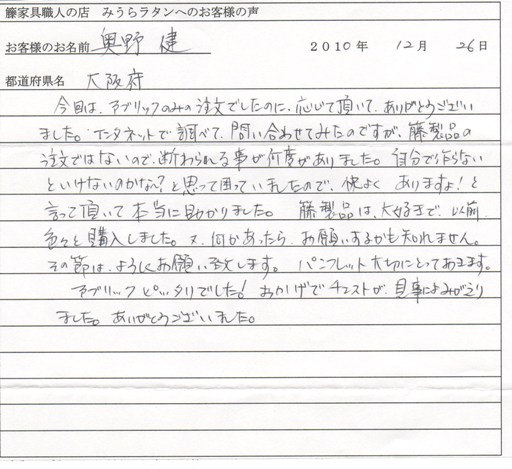 籐家具職人の店　みうらラタンへのお客様の声
お客様のお名前 奥野 健　2010年 12月 26日
都道府県名 大阪府
今回は、アブリックのみの注文でしたのに、応じて頂いて、ありがとうござい
ました。インタネットで調べて、問い合わせてみたのですが、藤製品の
注文ではないので、断わられる事が何度がありました。自分で作らない
といけないのかな?と思って困っていましたので、快よく ありますよ!と
言って頂いて本当に助かりました。 藤製品は、大好きで、以前
色々と購入しました。又、何かあったら、お願いするかも知れません。
その節は、よろしくお願い致します。 パンフレット大切にとっておきます。
アブリックピッタリでした! おかげでチェストが、見事によみがえり
ました。ありがとうございました。